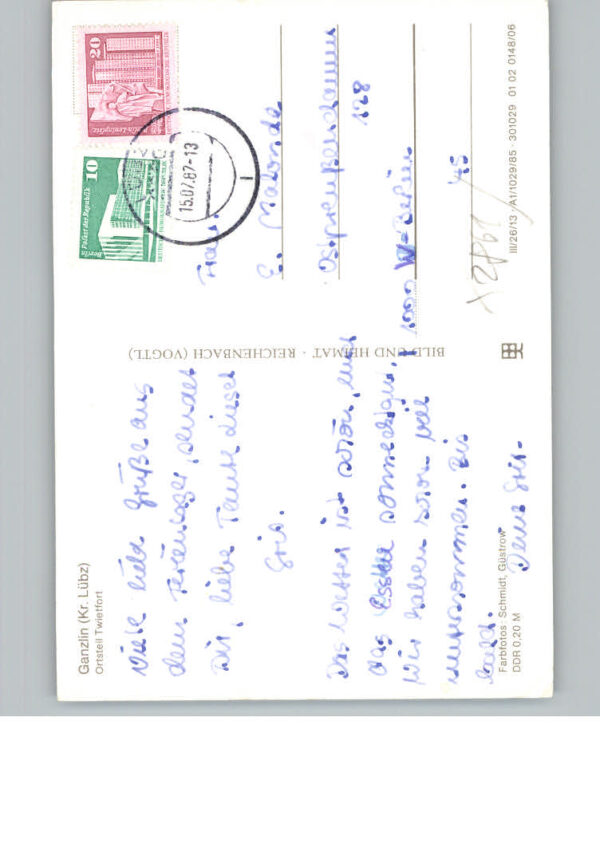 Ganzlin (Kr. Lübz)
Ortsteil Twietfort
Viele liebe Grüße aus
dem Ferienlager, sendet
Dir, liebe Tante Liesel
Gris.
Das Wetter ist schön, und
das Essen
Wir haben schon viel
unternommen. Bis
bald.
Deine Gris.
Farbfotos Schmidt, Güstrow
DDR 0,20 M
BILD UND HEIMAT · REICHENBACH (VOGTL)
20
10
Palast der Republik
Berlin
15.07.87-13
1
Frau
E. Malonde
Ostpreußendamm
128
1000 W-Berlin
45
III/26/13 A1/1029/85 · 301029 01 02 0148/06